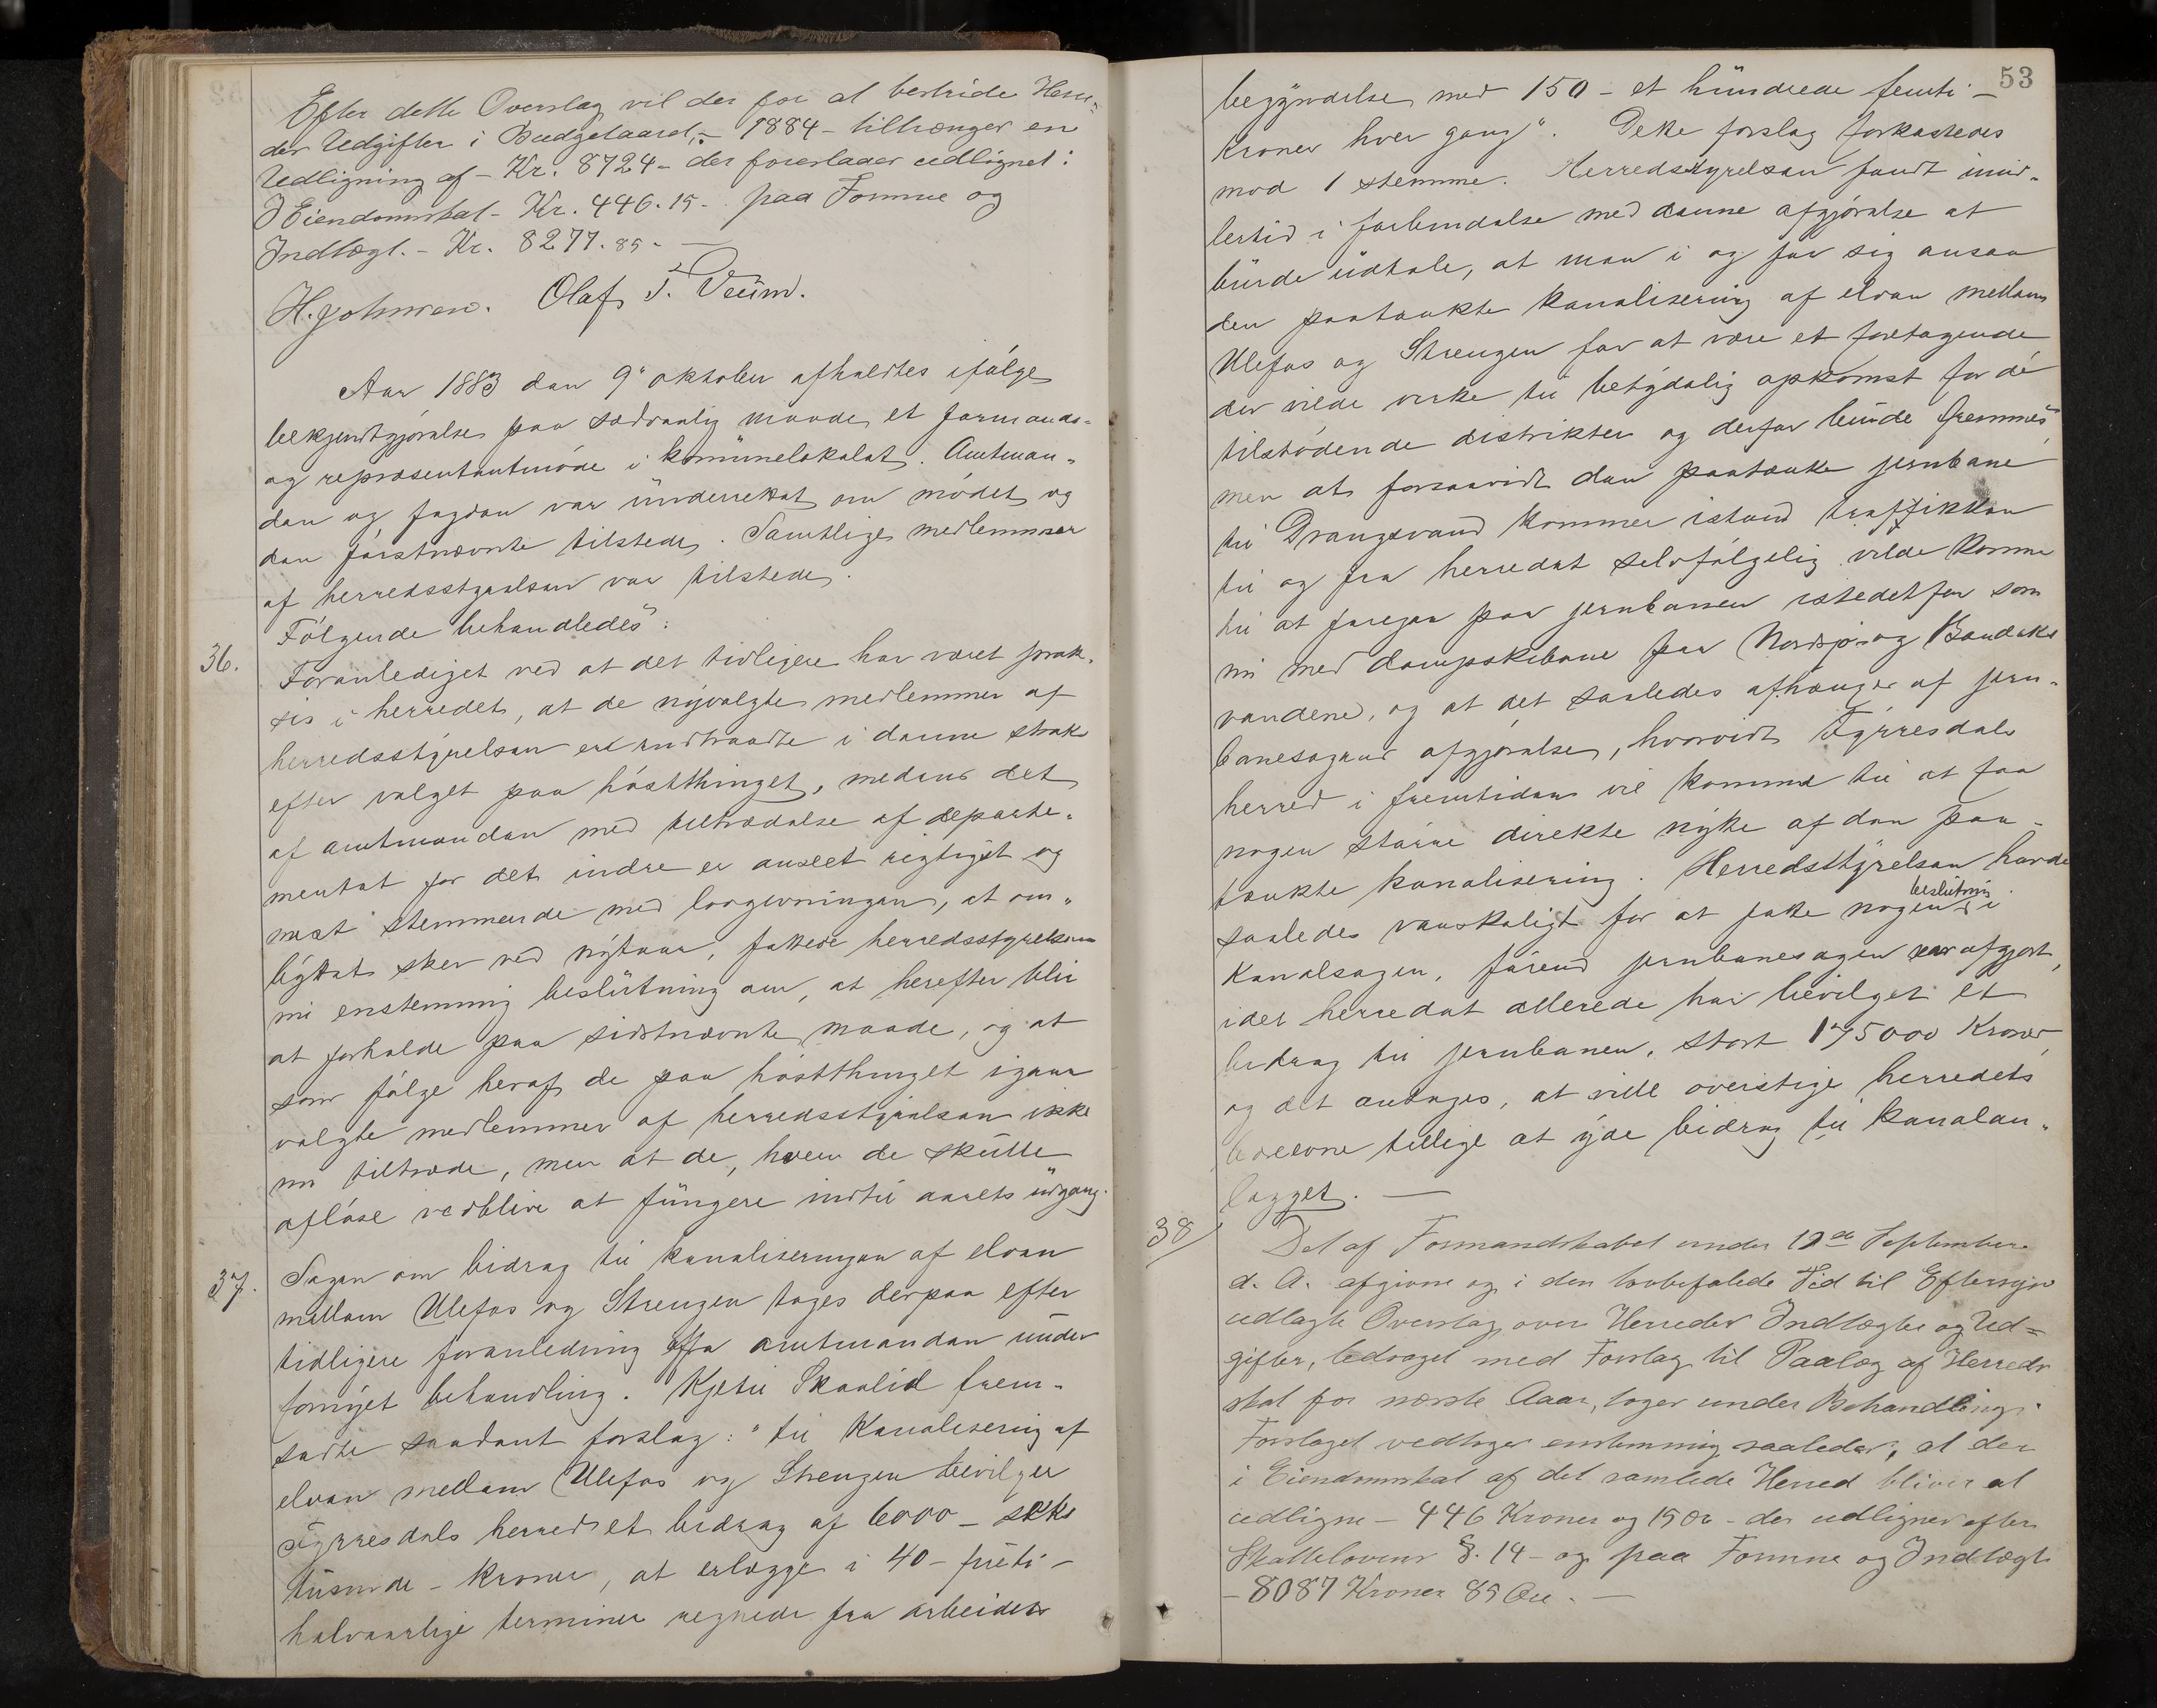 Efter dette Overslag vil der for at bestride Herre-
der Udgifter i Budgetaaret - 1884 - tiltrænges en
Udligning af - Kr. 8724 - der foreslaaes udlignet:
I Eiendomsskat - Kr. 446.15 - paa Formue og
Indtægt. - Kr. 8277.85. -
H. Johnsen. Olaf T. Veum.
Aar 1883 den 9de oktober afholdtes ifølge
bekjendtgjørelse paa sædvanlig maade et formands-
og repræsentantmøde i kommunelokalet. Amtman-
den og fogden var underrettet om mødet og
den førstnævnte tilstede. Samtlige medlemmer
af herredsstyrelsen var tilstede.
Følgende behandledes:
36.
Foranlediget ved at det tidligere har været prak-
sis i herredet, at de nyvalgte medlemmer af
herredsstyrelsen er indtraadte i denne straks
efter valget paa høstthinget, medens det
af amtmanden med tiltrædelse af departe-
mentet for det indre er anseet rigtigst og
mest stemmende med lovgivningen, at om-
byttet sker ved nytaar, fattede herredsstyrelsen
nu enstemmig beslutning om, at herefter blir
at forholde paa sidstnævnte maade, og at
som følge heraf de paa høstthinget igaar
valgte medlemmer af herredsstyrelsen ikke
nu tiltræde, men at de, hvem de skulle
afløse vedblive at fungere indtil aarets udgang.
37.
Sagen om bidrag til kanaliseringen af elven
mellem Ulefos og Strengen toges derpaa efter
tidligere foranledning fra amtmanden under
fornyet behandling. Kjetil Skaalid frem-
satte saadant forslag: "til Kanalisering af
elven mellem Ulefos og Strengen bevilger
Fyrresdals herred et bidrag af 6000 - seks
tusinde - kroner, at erlægge i 40 - firti -
halvaarlige terminer regnede fra arbeidets
53
begyndelse med 150 - et hundrede femti -
kroner hver gang". Dette forslag forkastedes
mod 1 stemme. Herredsstyrelsen fandt imid-
lertid i forbindelse med denne afgjørelse at
burde udtale, at man i og for sig ansaa
den paatænkte kanalisering af elven mellem
Ulefos og Strengen for at være et foretagende
der vilde virke til betydelig opkomst for de
tilstødende distrikter og derfor burde fremmes,
men at forsaavidt den paatænkte jernbane
til Drangsvand kommer istand traffikken
til og fra herredet selvfølgelig vilde komme
til at foregaa paa jernbanen istedetfor som
nu med dampskibene paa Nordsjø- og Bandaks
vandene, og at det saaledes afhænger af jern-
banesagens afgjørelse, hvorvidt Fyrresdals
herred i fremtiden vil komme til at faa
nogen større direkte nytte af den paa-
tænkte kanalisering. Herredsstyrelsen havde
saaledes vanskeligt for at fatte nogen beslutning i
Kanalsagen, førend jernbanesagen var afgjort,
idet herredet allerede har bevilget et
bidrag til jernbanen, stort 175000 Kroner,
og det antages, at ville overstige herredets
bæreevne tillige at yde bidrag til kanalan-
lægget. -
38/
Det af Formandskabet under 19de September
d. A. afgivne og i den lovbefalede Tid til Eftersyn
udlagte Overslag over Herreds Indtægter og Ud=
gifter, ledsaget med Forslag til Paalæg af Herreds
skat for næste Aar, toges under Behandling.
Forslaget vedtoges enstemmig saaledes, at der
i Eiendomsskat af det samlede Herred bliver at
udligne - 446 Kroner og 15 Ør - der udlignes efter
Skattelovens §. 14 - og paa Formue og Indtægt
- 8087 Kroner 85 Øre. -